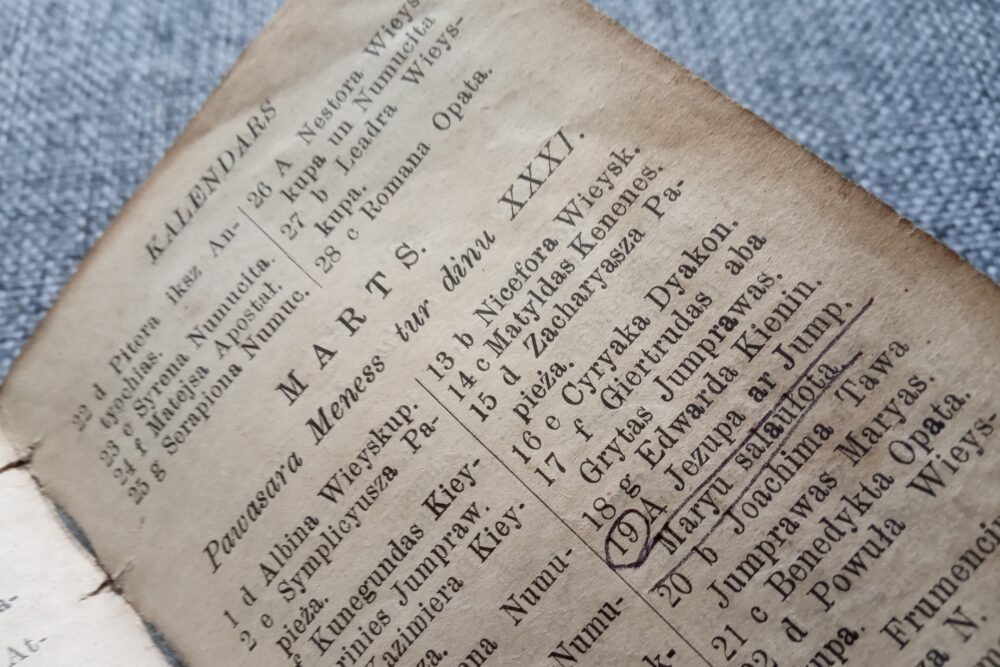 KALENDARS
22 d Pitora iksz An-
tyochias.
23 e Syrena Numucita.
24 f Matejsa Apostał.
25 g Serapiona Numuc.
26 A Nestora Wieys-
kupa un Numucita
27 b Leadra Wieys-
kupa.
28 c Romana Opata.
M A R T S.
Pawasara Meness tur dinu XXXI.
1 d Albina Wieyskup.
2 e Symplicyusza Pa-
pieża.
f Kunegundas Kiey-
Jumpraw.
Kazimiera Kiey-
Numu-
Numu-
13 b Nicefora Wieysk.
14 c Matyldas Kenenes.
15 d Zacharyasza Pa-
pieża.
16 e Cyryaka Dyakon.
17 f Giertrudas aba
Grytas Jumprawas.
18 g Edwarda Kienin.
19 A Jezupa ar Jump.
Maryu sałaułota.
20 b Joachima Tawa
Jumprawas Maryas.
21 c Benedykta Opata.
22 d Powuła Wieys-
kupa.
Frumenci
N.
a-
At-